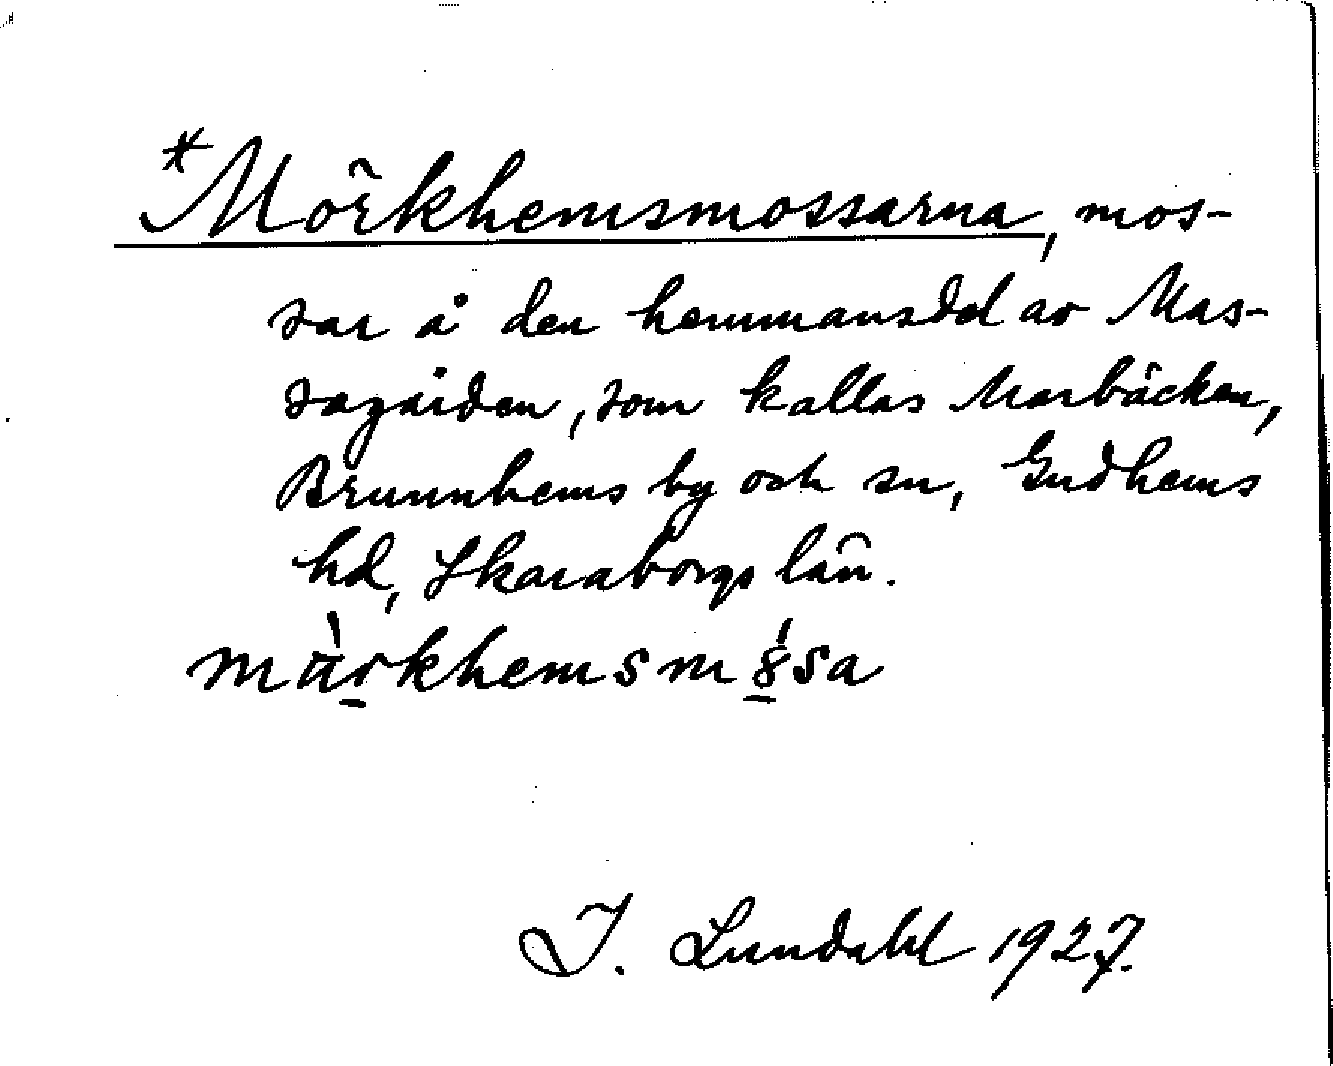 *Mörkhemsmossarna, mos-
sar å den hemmansdel av Mas-
sagården, som kallas Marbäcken,
Brunnhems by och sn, Gudhems
hd, Skaraborgs län.
märkhemsmɷsa
I. Lundahl 1927.